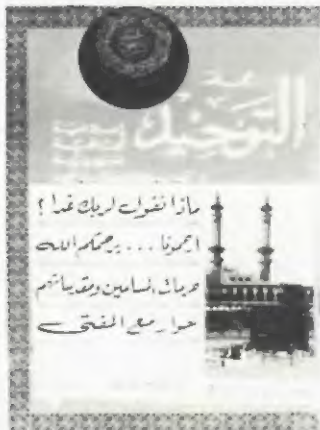 مجلة
التوحيد
ماذا نقول لربك غدا ؟
ارحمونا ... يرحمكم الله
حرمات المسلمين ومقدساتهم
حوار مع المفتى